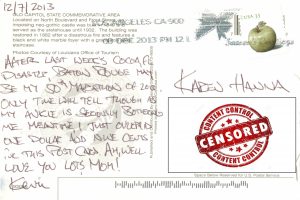 12/7/2013
OLD CAPITOL STATE COMMEMORATIVE AREA
Located on North Boulevard and
Imposing neo-gothic castle was built
served as the statehouse until 1932. The building was
restored in 1882 after a disastrous fire and features a
black and white marble foyer with a
staircase
Photos Courtesy of Louisiana Office of Tourism
LOS ANGELES CA 900
DEC 2013 PM 12
AFTER LAST WEEK'S COCOA, FL
DISASTER BATON ROUGE MAY
BE MY 50TH MARATHON OF 2013.
ONLY TIME WILL TELL THOUGH AS
MY ANKLE IS SERIOUSLY BOTHERING
ME. MEANTIME I JUST OVERPAID
ONE DOLLAR AND NINE CENTS
THIS POST CARD. AH, WELL
LOVE YOU LOTS MOM!
KADEN HANNA
CONTENT CONTROL
CENSORED
CONTENT CONTROL
Space Below Reserved for U.S. Postal Service